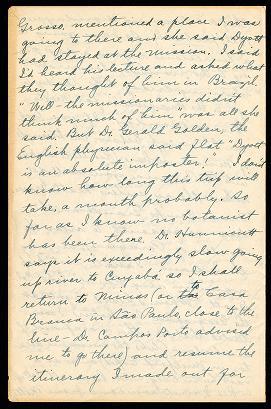 Grosso, mentioned a place I was
going to there and she said Dyott
had stayed at the mission. I said
I'd heard his lecture and asked what
they thought of him in Brazil.
"Well - the missionaries didn't
think much of him" was all she
said. But Dr. Gerald Golden, the
English physician said flat "Dyott
is an absolute imposter." I don't
know how long this trip will
take, a month probably. So
far as I know no botanist
has been there. Dr. Hunnicutt
says it is exceedingly slow going
up river to Cuyabá so I shall
return to Minas (or to Casa
Branca in São Paulo, close to the
line - Dr. Campos Porto advised
me to go there) and resume the
itinerary I made out for